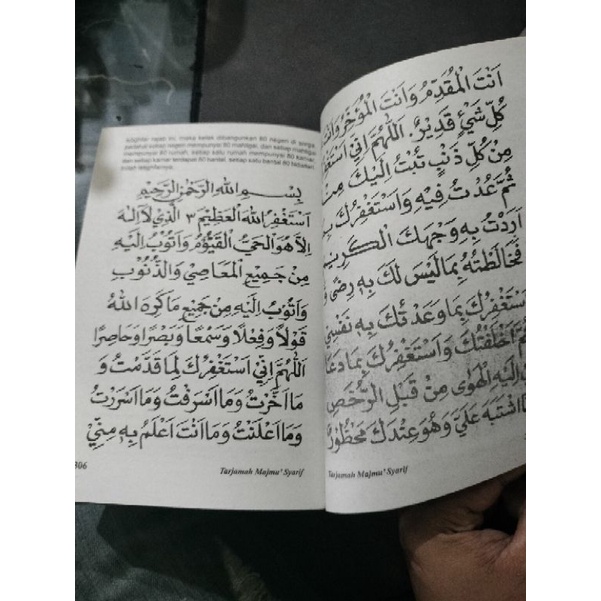 istighfar rajab ini, maka kelak dibangunkan 80 negeri di sorga,
padahal setiap negeri mempunyai 80 mahligai, dan setiap mahligai
mempunyai 80 rumah, setiap satu rumah mempunyai 80 kamar,
dan setiap kamar terdapat 80 bantal, setiap satu bantal 80 bidadari.
Inilah istighfarnya:
بِسْمِ اللهِ الرَّحْمٰنِ الرَّحِيْمِ
اَسْتَغْفِرُ اللهَ الْعَظِيْمَ ٣ الَّذِيْ لَا اِلٰهَ
اِلَّا هُوَ الْحَيُّ الْقَيُّوْمُ وَاَتُوْبُ اِلَيْهِ
مِنْ جَمِيْعِ الْمَعَاصِيْ وَالذُّنُوْبِ
وَاَتُوْبُ اِلَيْهِ مِنْ جَمِيْعِ مَا كَرِهَ اللهُ
قَوْلًا وَفِعْلًا وَسَمْعًا وَبَصَرًا وَحَاصِرًا
اَللّٰهُمَّ اِنِّيْ اَسْتَغْفِرُكَ لِمَا قَدَّمْتُ وَ
مَا اَخَّرْتُ وَمَا اَسْرَفْتُ وَمَا اَسْرَرْتُ
وَمَا اَعْلَنْتُ وَمَا اَنْتَ اَعْلَمُ بِهِ مِنِّيْ
306
Tarjamah Majmu' Syarif
اَنْتَ الْمُقَدِّمُ وَاَنْتَ الْمُؤَخِّرُ وَاَنْتَ
كُلِّ شَيْءٍ قَدِيْرٌ. اَللّٰهُمَّ اِنِّيْ
مِنْ كُلِّ ذَنْبٍ تُبْتُ اِلَيْكَ مِنْهُ
ثُمَّ عُدْتُ فِيْهِ وَاَسْتَغْفِرُكَ
اَرَدْتُ بِهِ وَجْهَكَ الْكَرِيْمَ
فَخَالَطْتُهُ بِمَا لَيْسَ لَكَ بِهِ رِضًى
اَسْتَغْفِرُكَ بِمَا وَعَدْتُكَ بِهِ نَفْسِيْ
اَخْلَفْتُكَ وَاَسْتَغْفِرُكَ بِمَا دَعَا
اِلَيْهِ الْهَوٰى مِنْ قَبْلِ الرُّخَصِ
اشْتَبَهَ عَلَيَّ وَهُوَ عِنْدَكَ مَحْظُوْرٌ
Tarjamah Majmu' Syarif